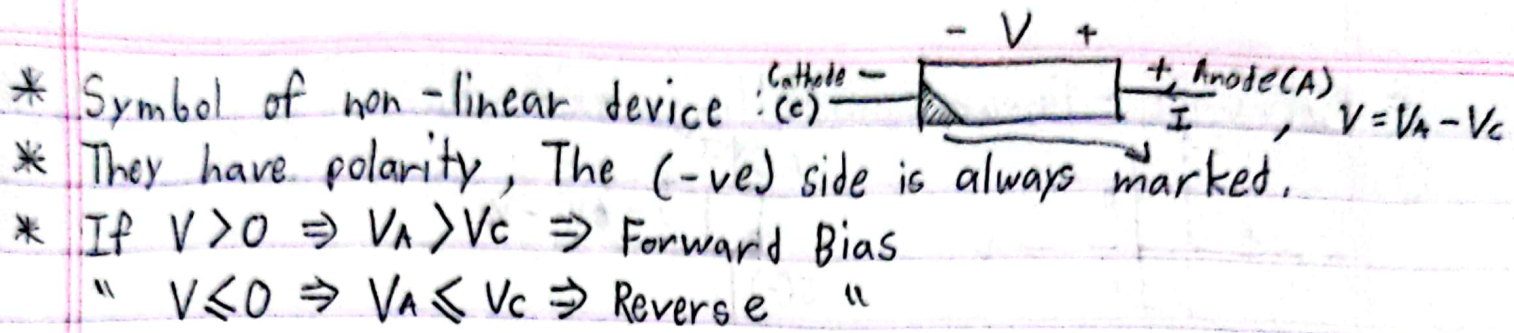 - V +
* Symbol of non-linear device : Cathode (C) - + Anode(A) I , V = VA - VC
* They have polarity, The (-ve) side is always marked.
* If V > 0 ⇒ VA > VC ⇒ Forward Bias
" V ≤ 0 ⇒ VA ≤ VC ⇒ Reverse "